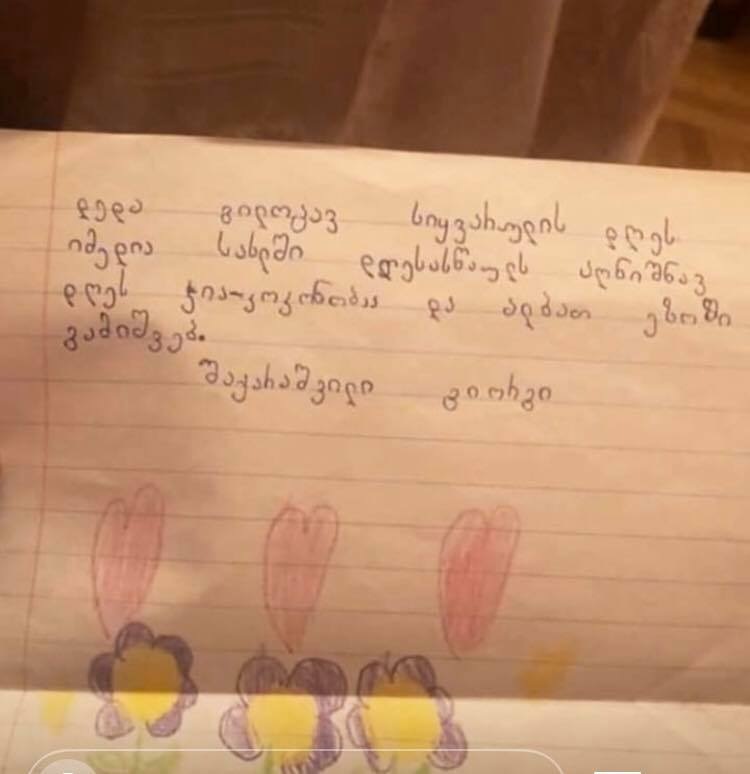 დედა გილოცავ სიყვარულის დღეს
იმედია სახლში დღესასწაულს აღნიშნავ
დღეს ჭია-კოკონობაა და ალბათ ეზოში
გამიშვებ.
შაქარაშვილი გიორგი